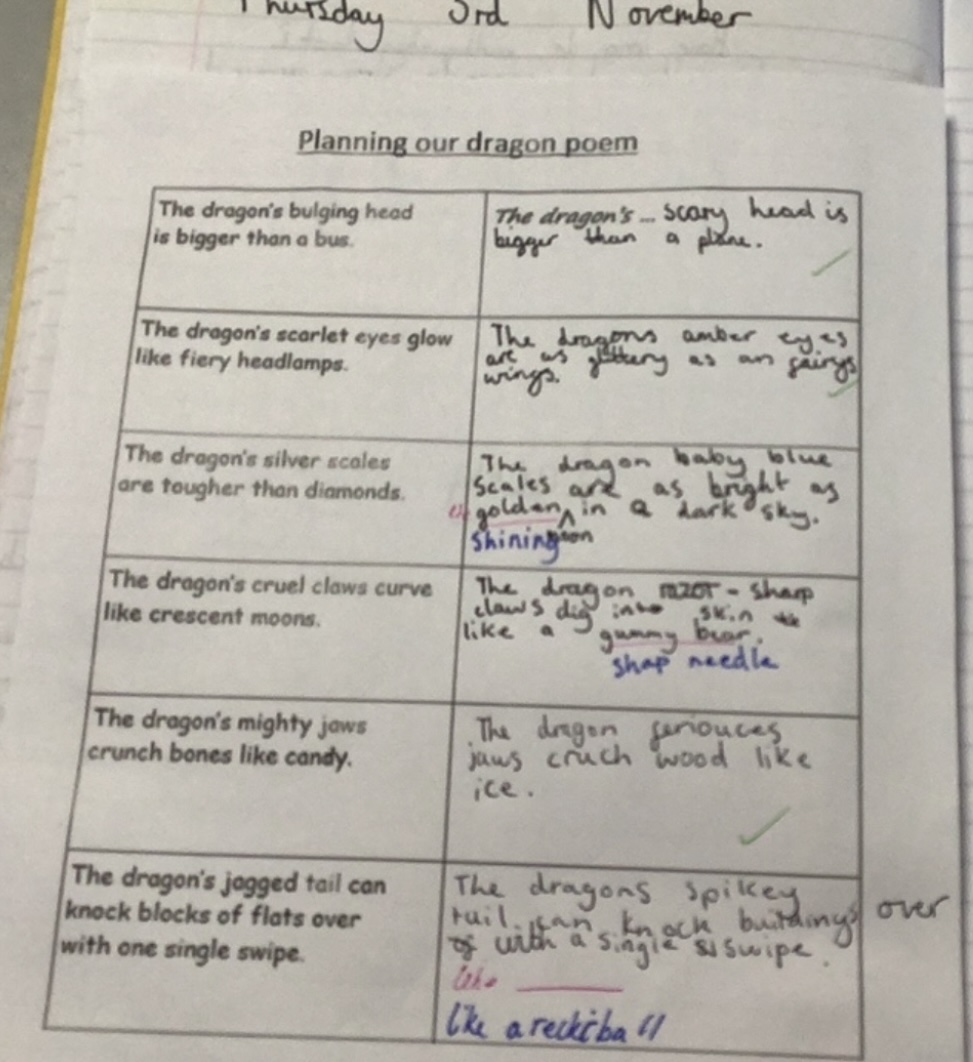 Thursday 3rd November
Planning our dragon poem
The dragon's bulging head
is bigger than a bus.
The dragon's ... scary head is
bigger than a plane.
The dragon's scarlet eyes glow
like fiery headlamps.
The dragons amber eyes
are as glittery as an fairys
wings.
The dragon's silver scales
are tougher than diamonds.
The dragon baby blue
Scales are as bright as
golden ^ in a dark sky.
Shining moon
The dragon's cruel claws curve
like crescent moons.
The dragon razor-sharp
claws dig into skin
like a gummy bear.
shap needle
The dragon's mighty jaws
crunch bones like candy.
The dragon feriouces
jaws cruch wood like
ice.
The dragon's jagged tail can
knock blocks of flats over
with one single swipe.
The dragons spikey
tail can knock buildings over
with a single swipe.
like ______
like a reckiball